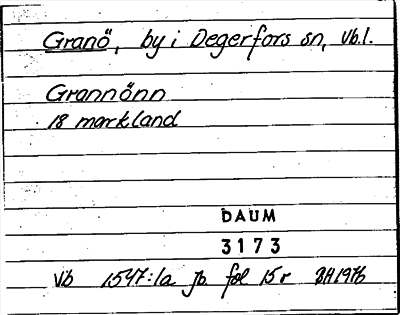 Granö, by i Degerfors sn, Vb.l.
Grannönn
18 markland
DAUM
3173
Vb 1547:1a jb. fol 15 r BH 1976